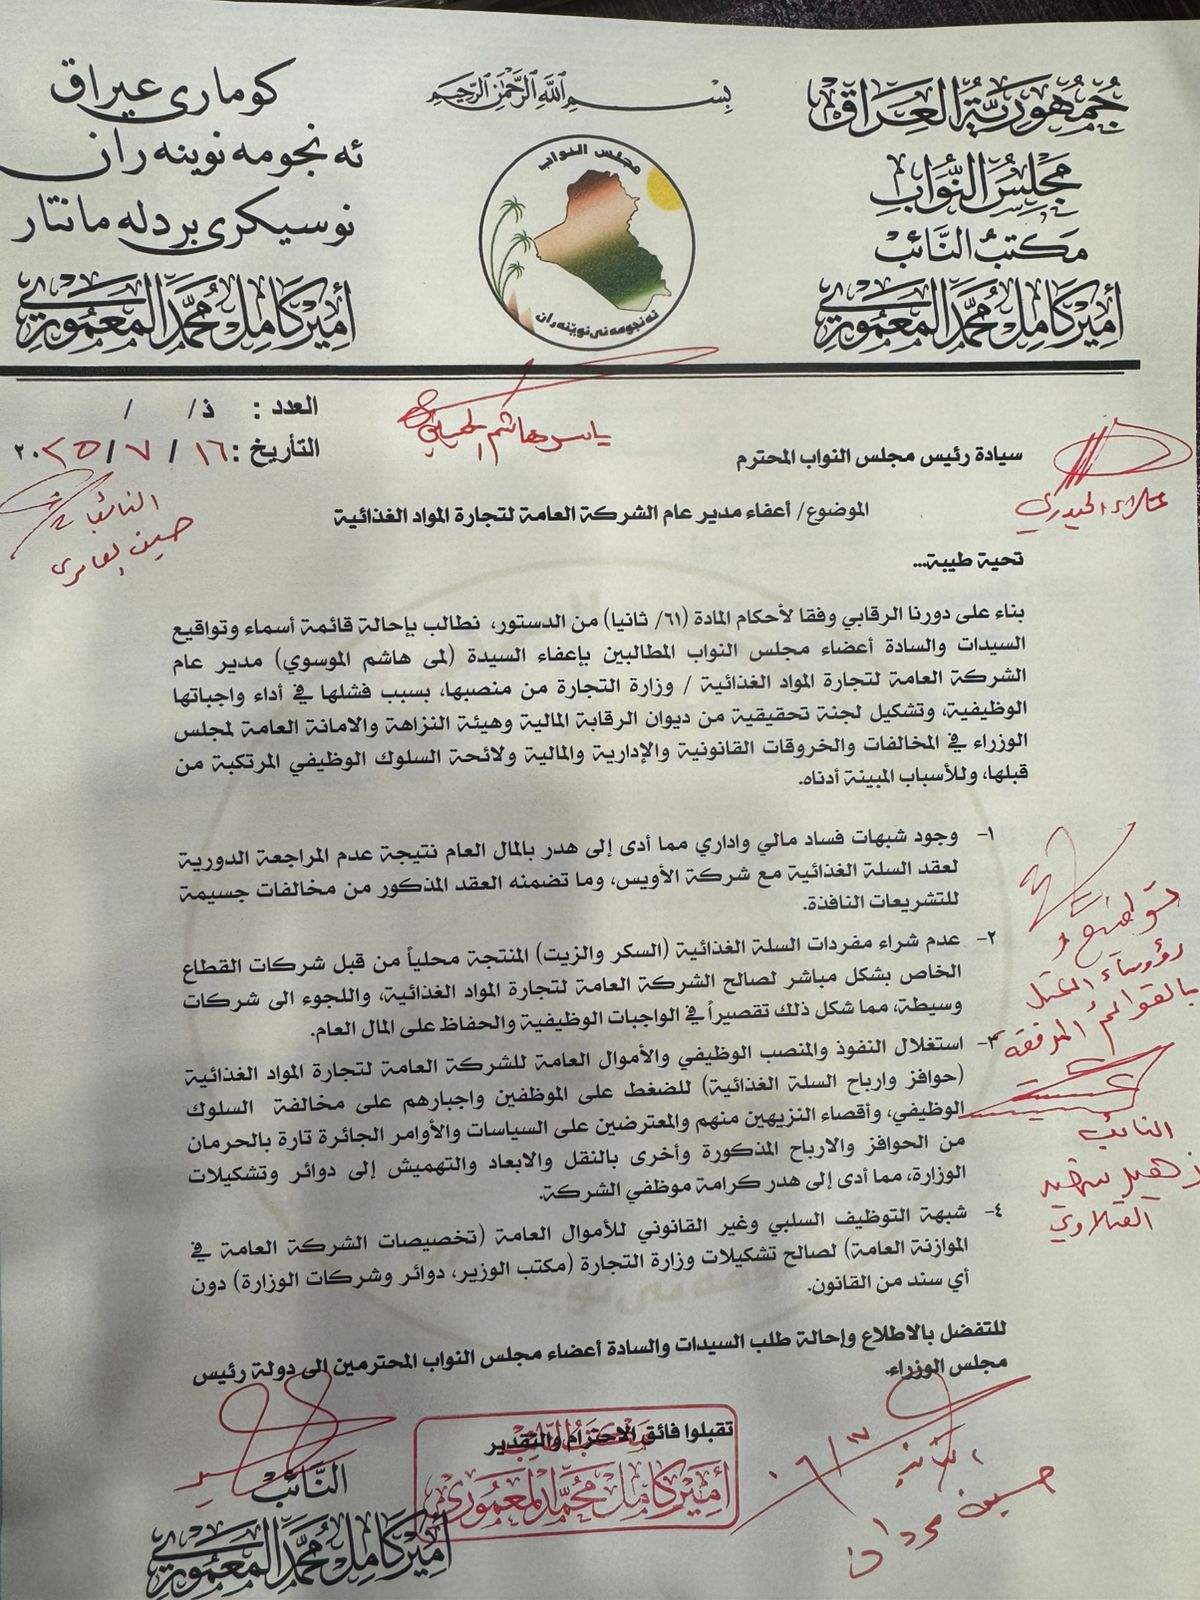 بسم الله الرحمن الرحيم
جمهورية العراق
مجلس النواب
مكتب النائب
أمير كامل محمد المعموري
كوماري عيراق
ئه نجومه نوينه ران
نوسيكرى بردله مانتار
أمير كامل محمد المعموري
مجلس النواب
ئه نجومه نى نوينه ران
العدد : ذ/ /
التأريخ : ١٦ / ٧ / ٢٠٢٥
ياسر هاشم الحسيني
علاء الحيدري
النائب
حسين العامري
سيادة رئيس مجلس النواب المحترم
الموضوع/ أعفاء مدير عام الشركة العامة لتجارة المواد الغذائية
تحية طيبة...
بناء على دورنا الرقابي وفقا لأحكام المادة (٦١/ ثانيا) من الدستور، نطالب بإحالة قائمة أسماء وتواقيع
السيدات والسادة أعضاء مجلس النواب المطالبين بإعفاء السيدة (لمى هاشم الموسوي) مدير عام
الشركة العامة لتجارة المواد الغذائية / وزارة التجارة من منصبها، بسبب فشلها في أداء واجباتها
الوظيفية، وتشكيل لجنة تحقيقية من ديوان الرقابة المالية وهيئة النزاهة والامانة العامة لمجلس
الوزراء في المخالفات والخروقات القانونية والإدارية والمالية ولائحة السلوك الوظيفي المرتكبة من
قبلها، وللأسباب المبينة أدناه.
١- وجود شبهات فساد مالي واداري مما أدى إلى هدر بالمال العام نتيجة عدم المراجعة الدورية
لعقد السلة الغذائية مع شركة الأويس، وما تضمنه العقد المذكور من مخالفات جسيمة
للتشريعات النافذة.
٢- عدم شراء مفردات السلة الغذائية (السكر والزيت) المنتجة محلياً من قبل شركات القطاع
الخاص بشكل مباشر لصالح الشركة العامة لتجارة المواد الغذائية، واللجوء الى شركات
وسيطة، مما شكل ذلك تقصيراً في الواجبات الوظيفية والحفاظ على المال العام.
٣- استغلال النفوذ والمنصب الوظيفي والأموال العامة للشركة العامة لتجارة المواد الغذائية
(حوافز وارباح السلة الغذائية) للضغط على الموظفين واجبارهم على مخالفة السلوك
الوظيفي، وأقصاء النزيهين منهم والمعترضين على السياسات والأوامر الجائرة تارة بالحرمان
من الحوافز والارباح المذكورة وأخرى بالنقل والابعاد والتهميش إلى دوائر وتشكيلات
الوزارة، مما أدى إلى هدر كرامة موظفي الشركة.
٤- شبهة التوظيف السلبي وغير القانوني للأموال العامة (تخصيصات الشركة العامة في
الموازنة العامة) لصالح تشكيلات وزارة التجارة (مكتب الوزير، دوائر وشركات الوزارة) دون
أي سند من القانون.
رؤوساء الكتل
بالقوائم المرفقة
النائب
زهير شهيد
الفتلاوي
للتفضل بالاطلاع وإحالة طلب السيدات والسادة أعضاء مجلس النواب المحترمين إلى دولة رئيس
مجلس الوزراء.
تقبلوا فائق الاحترام والتقدير
مكتب النائب
أمير كامل محمد المعموري
النائب
أمير كامل محمد المعموري
النائب
حسين